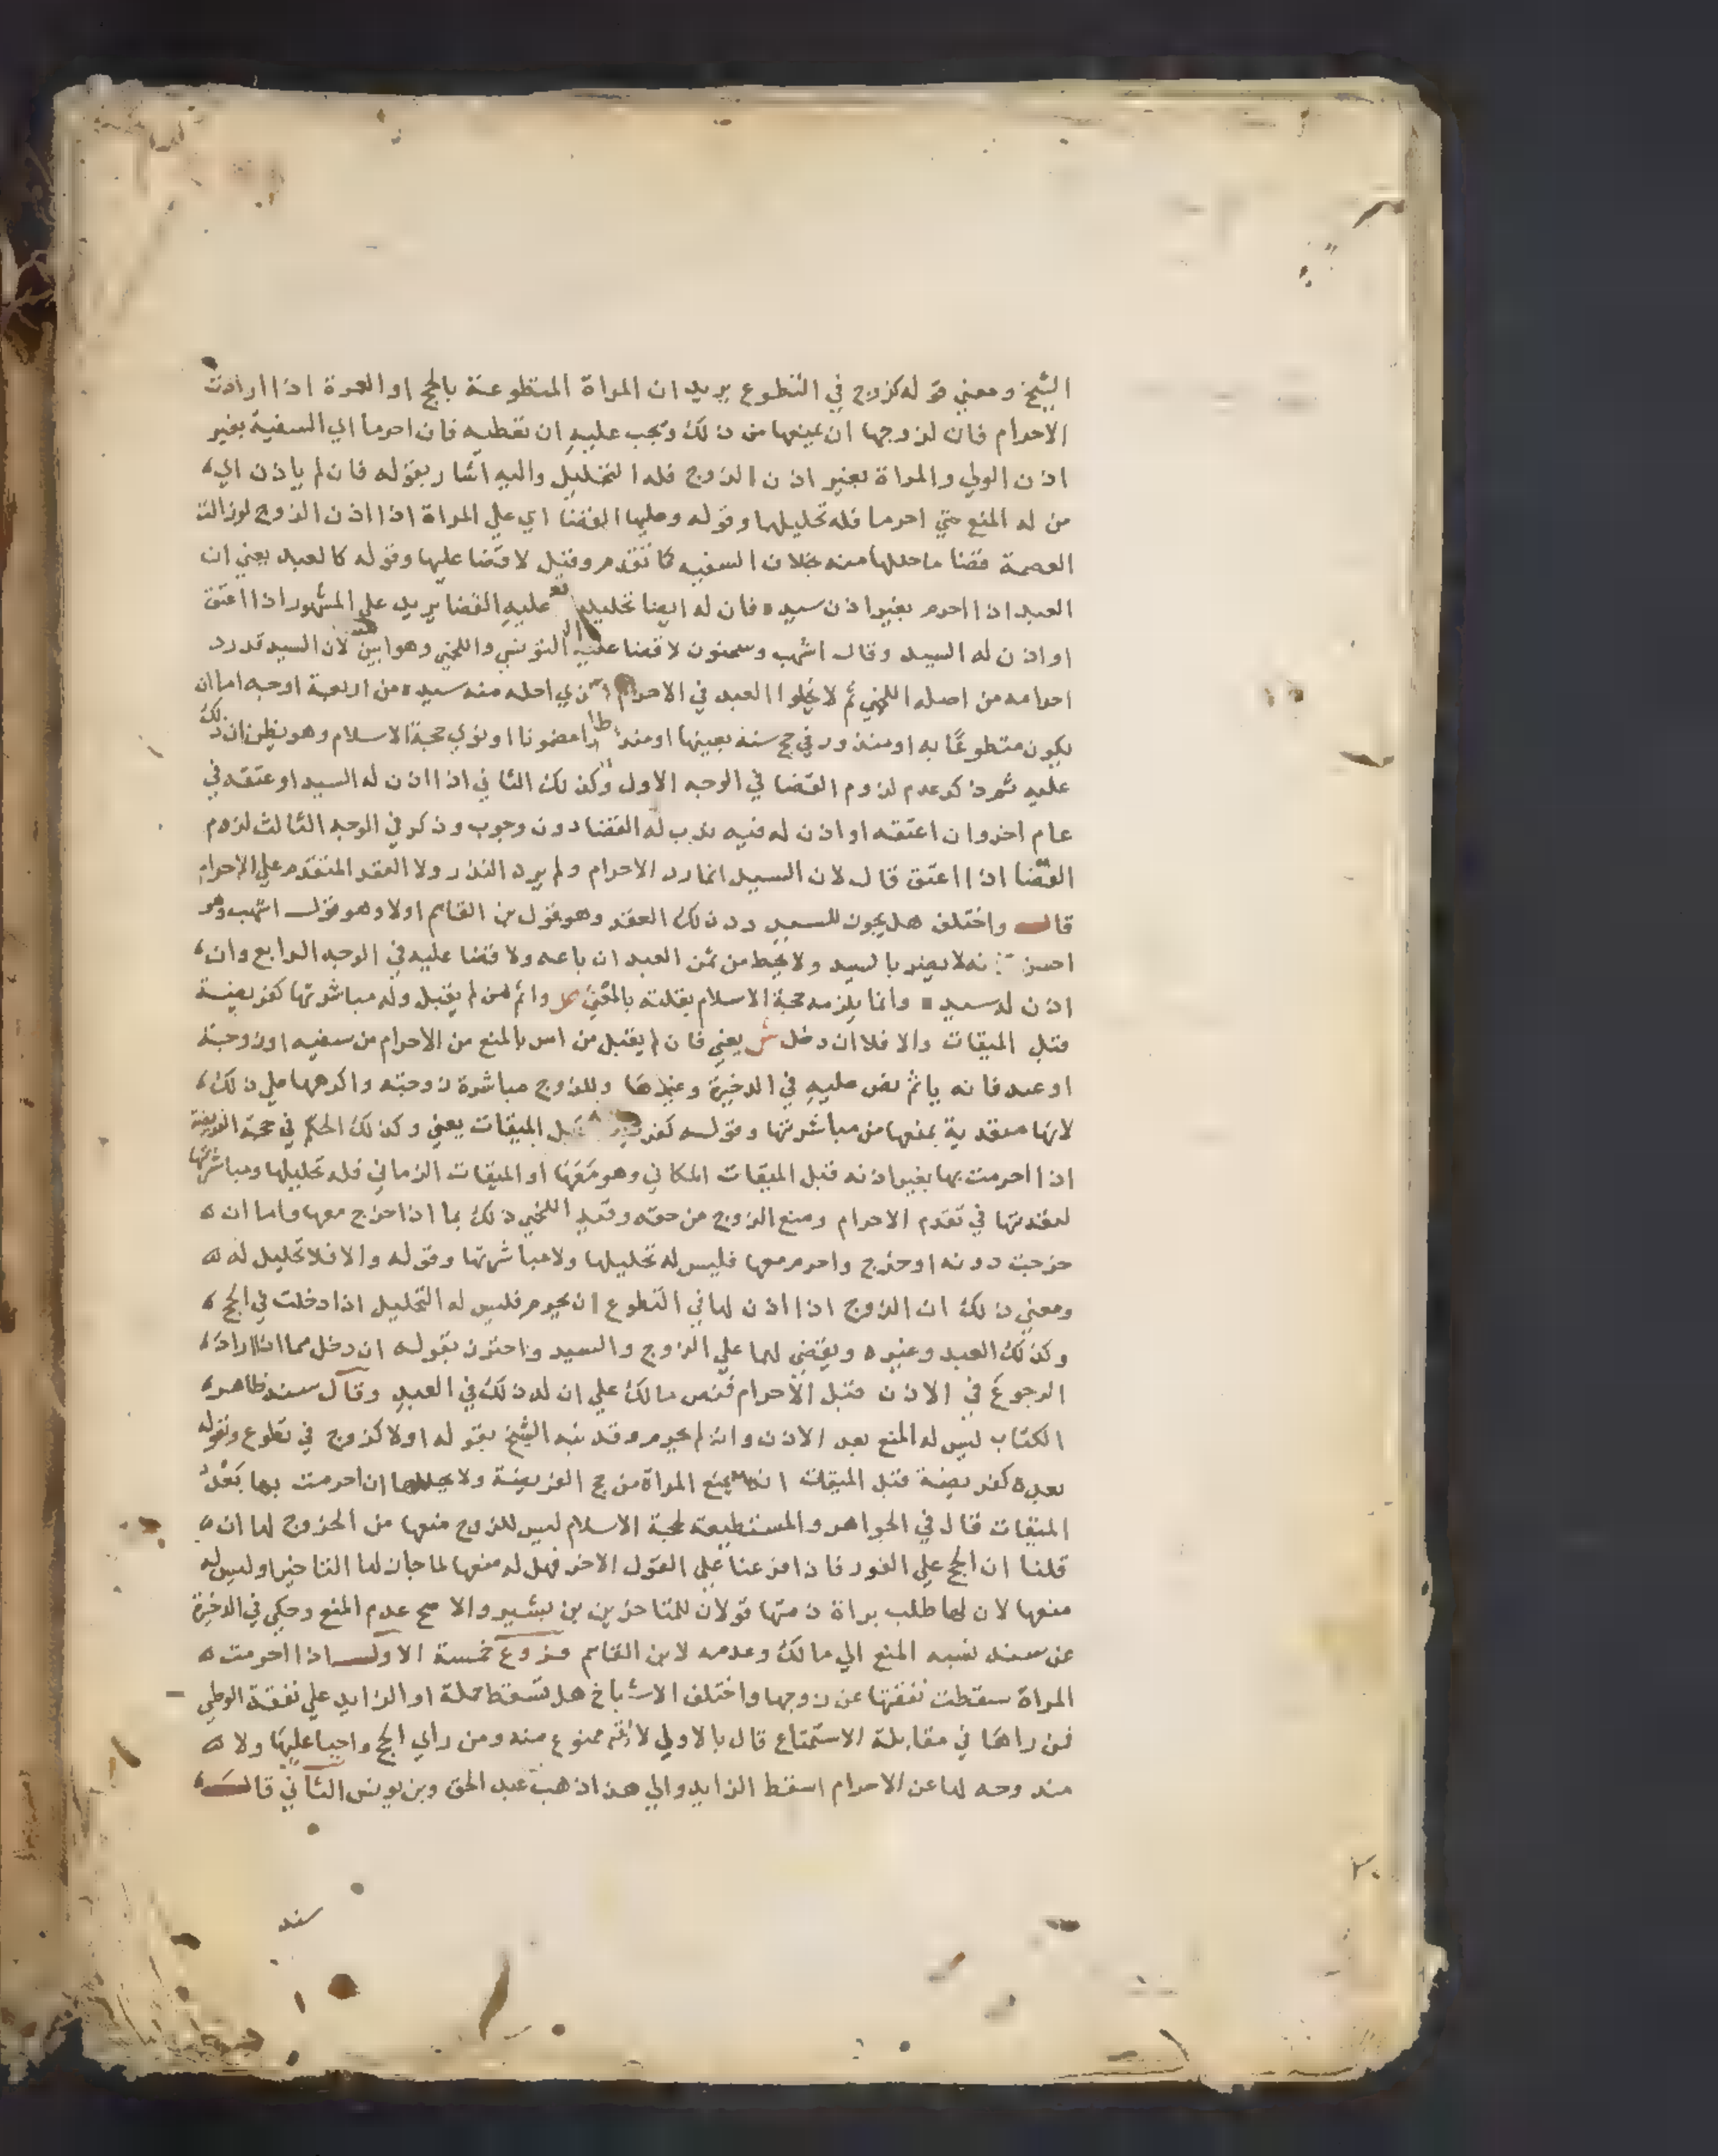 الشيخ ومعني قوله كزوج في التطوع يريد ان المراة المتطوعة بالحج او العمرة اذا ارادت
الاحرام فان لزوجها ان يمنعها من ذلك ويجب عليه ان تعطيه فان احرما اي السفية بغير
اذن الولي والمراة بغير اذن الزوج فله التحليل واليه اشار بقوله فان لم ياذن اي
من له المنع حتي احرما فله تحليلها وقوله وعليها القضا اي علي المراة اذا اذن الزوج لوزالت
العصمة قضا ما حللها منه بخلاف السفيه كما تقدم وقيل لا قضا عليها وقوله كالعبد يعني ان
العبد اذا احرم بغير اذن سيده فان له ايضا تحليله عليه القضا يريد علي المشهور اذا اعتق
او اذن له السيد وقال اشهب وسحنون لا قضا عليه التونسي واللخمي وهو ابين لان السيد قد رد
احرامه من اصله اللخمي ثم لا يخلوا العبد في الاحرام الذي احله منه سيده من اربعة اوجه اما ان
يكون متطوعًا به او منذور في حج سنة بعينها او منذرا مضمونا او نوي حجة الاسلام وهو يظن ان ذلك
عليه ثم ذكر عدم لزوم القضا في الوجه الاول وكذلك الثاني اذا اذن له السيد او عتقه في
عام اخر وان اعتقه او اذن له فيه ندب له القضا دون وجوب وذكر في الوجه الثالث لزوم
القضا اذا اعتق قال لان السيد انما رد الاحرام ولم يرد النذر ولا العقد المتقدم علي الاحرام
قال واختلف هل يجوز للسيد رد ذلك العقد وهو قول بن القاسم اولا وهو قول اشهب وهو
احسن نه لا يضر بالسيد ولا يحط من ثمن العبد ان باعه ولا قضا عليه في الوجه الرابع وان
اذن له سيده وانما يلزمه حجة الاسلام بعد عتقه واثم من لم يقبل وله مباشرتها كفريضة
قبل الميقات والا فلا ان دخل ش يعني فان لم يقبل من امر بالمنع من الاحرام من سفيه او زوجة
او عبد فانه ياثم نص عليه في الذخيرة وغيرها وللزوج مباشرة زوجته واكرهها علي ذلك
لانها متعدية بمنعها من مباشرتها وقوله كفريضة قبل الميقات يعني وكذلك الحكم في حجة الفريضة
اذا احرمت بها بغير اذنه قبل الميقات المكاني وهو مَعَهَا او الميقات الزماني فله تحليلها ومباشرتها
لتعديتها في تقدم الاحرام ومنع الزوج من حقه وقيد اللخمي ذلك بما اذا خرج معها واما ان
خرجت دونه او خرج واحرم معها فليس له تحليلها ولا مباشرتها وقوله والا فلا تحليل له
ومعني ذلك ان الزوج اذا اذن لها في التطوع ان يحرم فليس له التحليل اذا دخلت في الحج
وكذلك العبد وغيره ويقضي لهما علي الزوج والسيد واحترز بقوله ان دخل مما اذا اراد
الرجوع في الاذن قبل الاحرام فنص مالك علي ان له ذلك في العبد وقال سند ظاهر
الكتاب ليس له المنع بعد الاذن وان لم يحرم وقد نبه الشيخ بقوله اولا كزوج في تطوع وبقوله
بعده كفريضة قبل الميقات انه يمنع المراة من حج الفريضة ولا يحللها ان احرمت بها بَعْدَ
الميقات قال في الجواهر والمستطيعة لحجة الاسلام ليس للزوج منعها من الخروج لها ان
قلنا ان الحج علي الفور فان فرعنا علي القول الاخر فهل له منعها لما جاز لها التاخير او ليس له
منعها لان لها طلب براة ذمتها قولان للمتاخرين بن بشير والاصح عدم المنع وحكي في الذخيرة
عن سند نسبه المنع الي مالك وعدمه لابن القاسم فروع خمسة الاول اذا احرمت
المراة سقطت نفقتها عن زوجها واختلف الاشياخ هل تسقط جملة او الزايد علي نفقة الوطي
فمن راها في مقابلة الاستمتاع قال بالاولي لانه ممنوع منه ومن راي الحج واجبا عليها ولا
مندوحه لها عن الاحرام اسقط الزايد والي هذا ذهب عبد الحق وبن يونس الثاني قال
سند